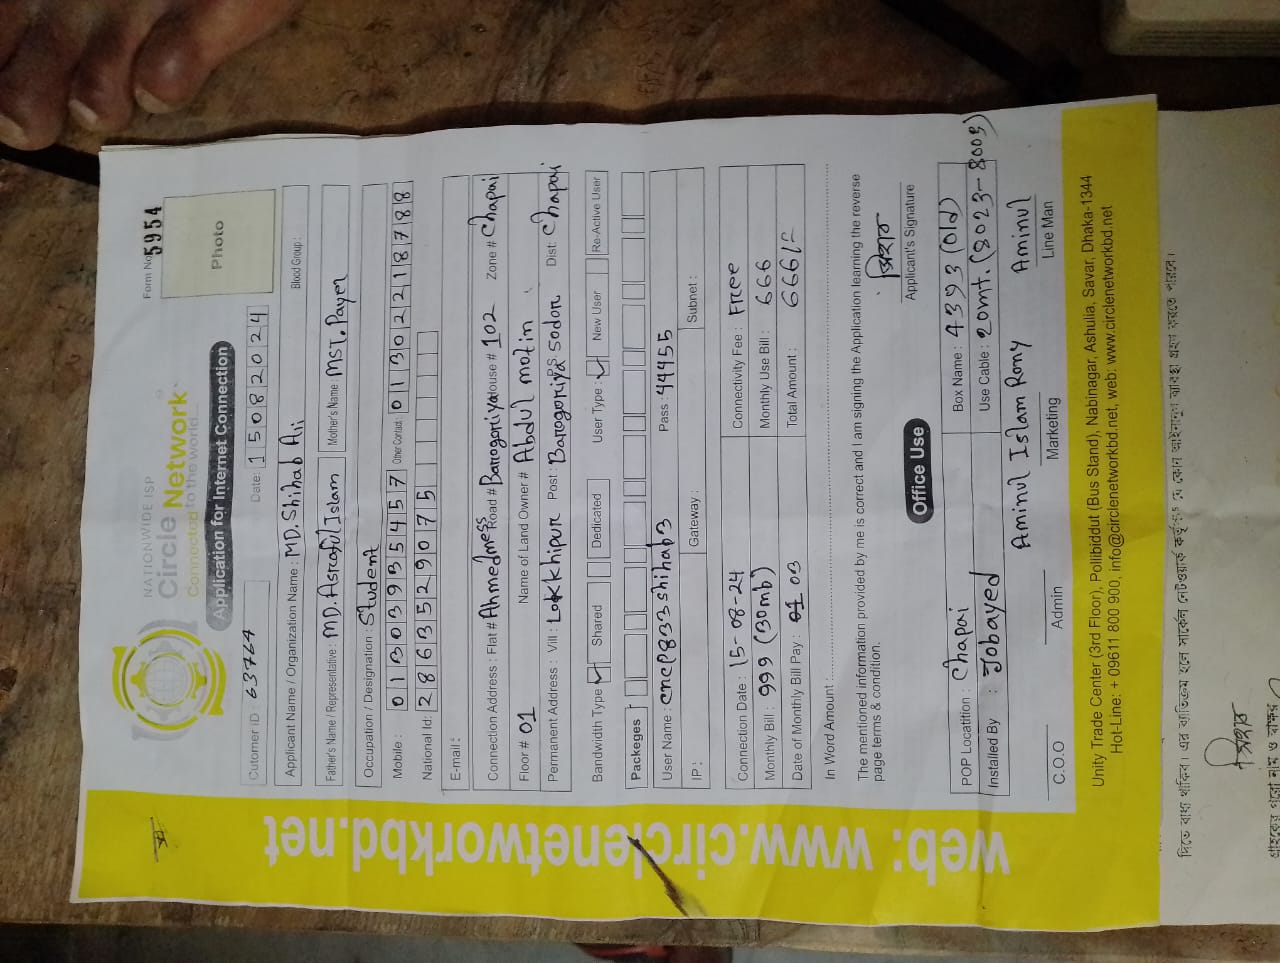 Form No. 5954
NATIONWIDE ISP
Circle Network
Connected to the world...
Application for Internet Connection
Photo
Cutomer ID : 63764 Date: 15082024
Applicant Name / Organization Name : MD. Shihab Ali Blood Group :
Father's Name / Representative : MD. Asraful Islam Mother's Name : MST. Payer
Occupation / Designation : Student
Mobile : 01303955457 Other Contact: 01302218788
National Id: 2863529075
E-mail :
Connection Address : Flat # Ahmedmess Road # Barogoriya House # 102 Zone # Chapai
Floor # 01 Name of Land Owner # Abdul motin
Permanent Address : Vill : Lokkhipur Post : Barogoriya P.S Sodor Dist: Chapai
Bandwidth Type : Shared Dedicated User Type : New User Re-Active User
Packeges
User Name : cncp833shihab3 Pass : 44455
IP : Gateway : Subnet :
Connection Date : 15-08-24 Connectivity Fee : Free
Monthly Bill : 999 (30mb) Monthly Use Bill : 666
Date of Monthly Bill Pay : 03 Total Amount : 666/=
In Word Amount :
The mentioned information provided by me is correct and I am signing the Application learning the reverse
page terms & condition.
সিহাব
Applicant's Signature
Office Use
POP Locatition : Chapai Box Name : 4393 (Old)
Installed By : Jobayed Use Cable : 20mt. (8023-8003)
Aminul Islam Rony Aminul
C.O.O Admin Marketing Line Man
Unity Trade Center (3rd Floor), Pollibiddut (Bus Stand), Nabinagar, Ashulia, Savar, Dhaka-1344
Hot-Line: + 09611 800 900, info@circlenetworkbd.net, web: www.circlenetworkbd.net
web: www.circlenetworkbd.net
দিতে বাধ্য থাকিব। এর ব্যতিক্রম হলে সার্কেল নেটওয়ার্ক কর্তৃপক্ষ যে কোন আইনানুগ ব্যবস্থা গ্রহণ করতে পারবে।
সিহাব